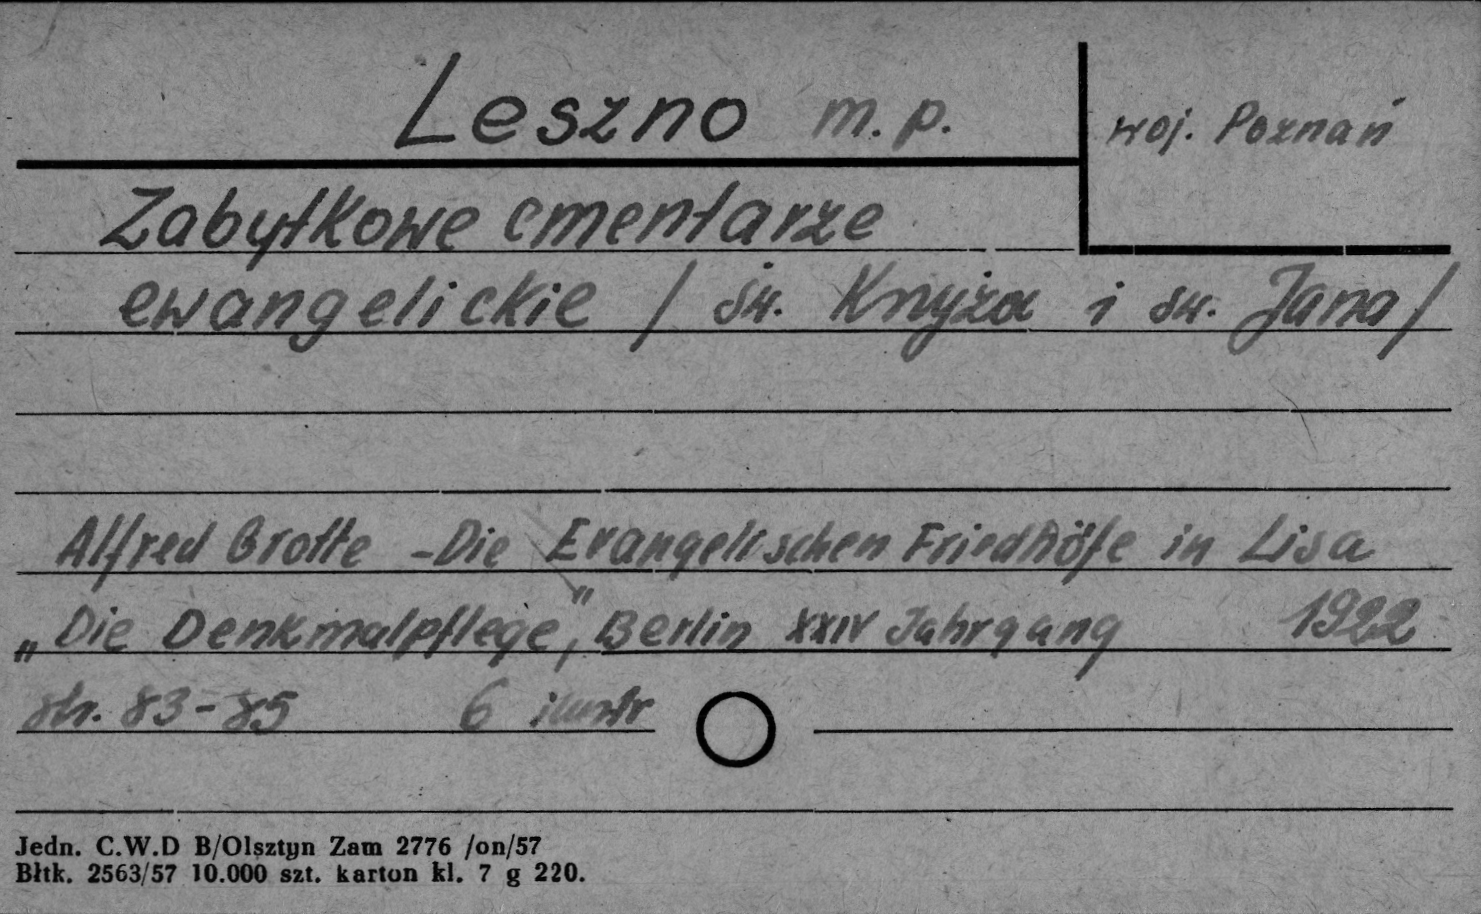 Leszno m. p.
woj. Poznań
Zabytkowe cmentarze
ewangelickie / św. Knyża i św. Jana/
Alfred Grotte - Die Evangelischen Friedhöfe in Lisa
„Die Denkmalpflege", Berlin XXIV Jahrgang 1922
str. 83-85 6 ilustr
Jedn. C.W.D B/Olsztyn Zam 2776 /on/57
Błtk. 2563/57 10.000 szt. karton kl. 7 g 220.